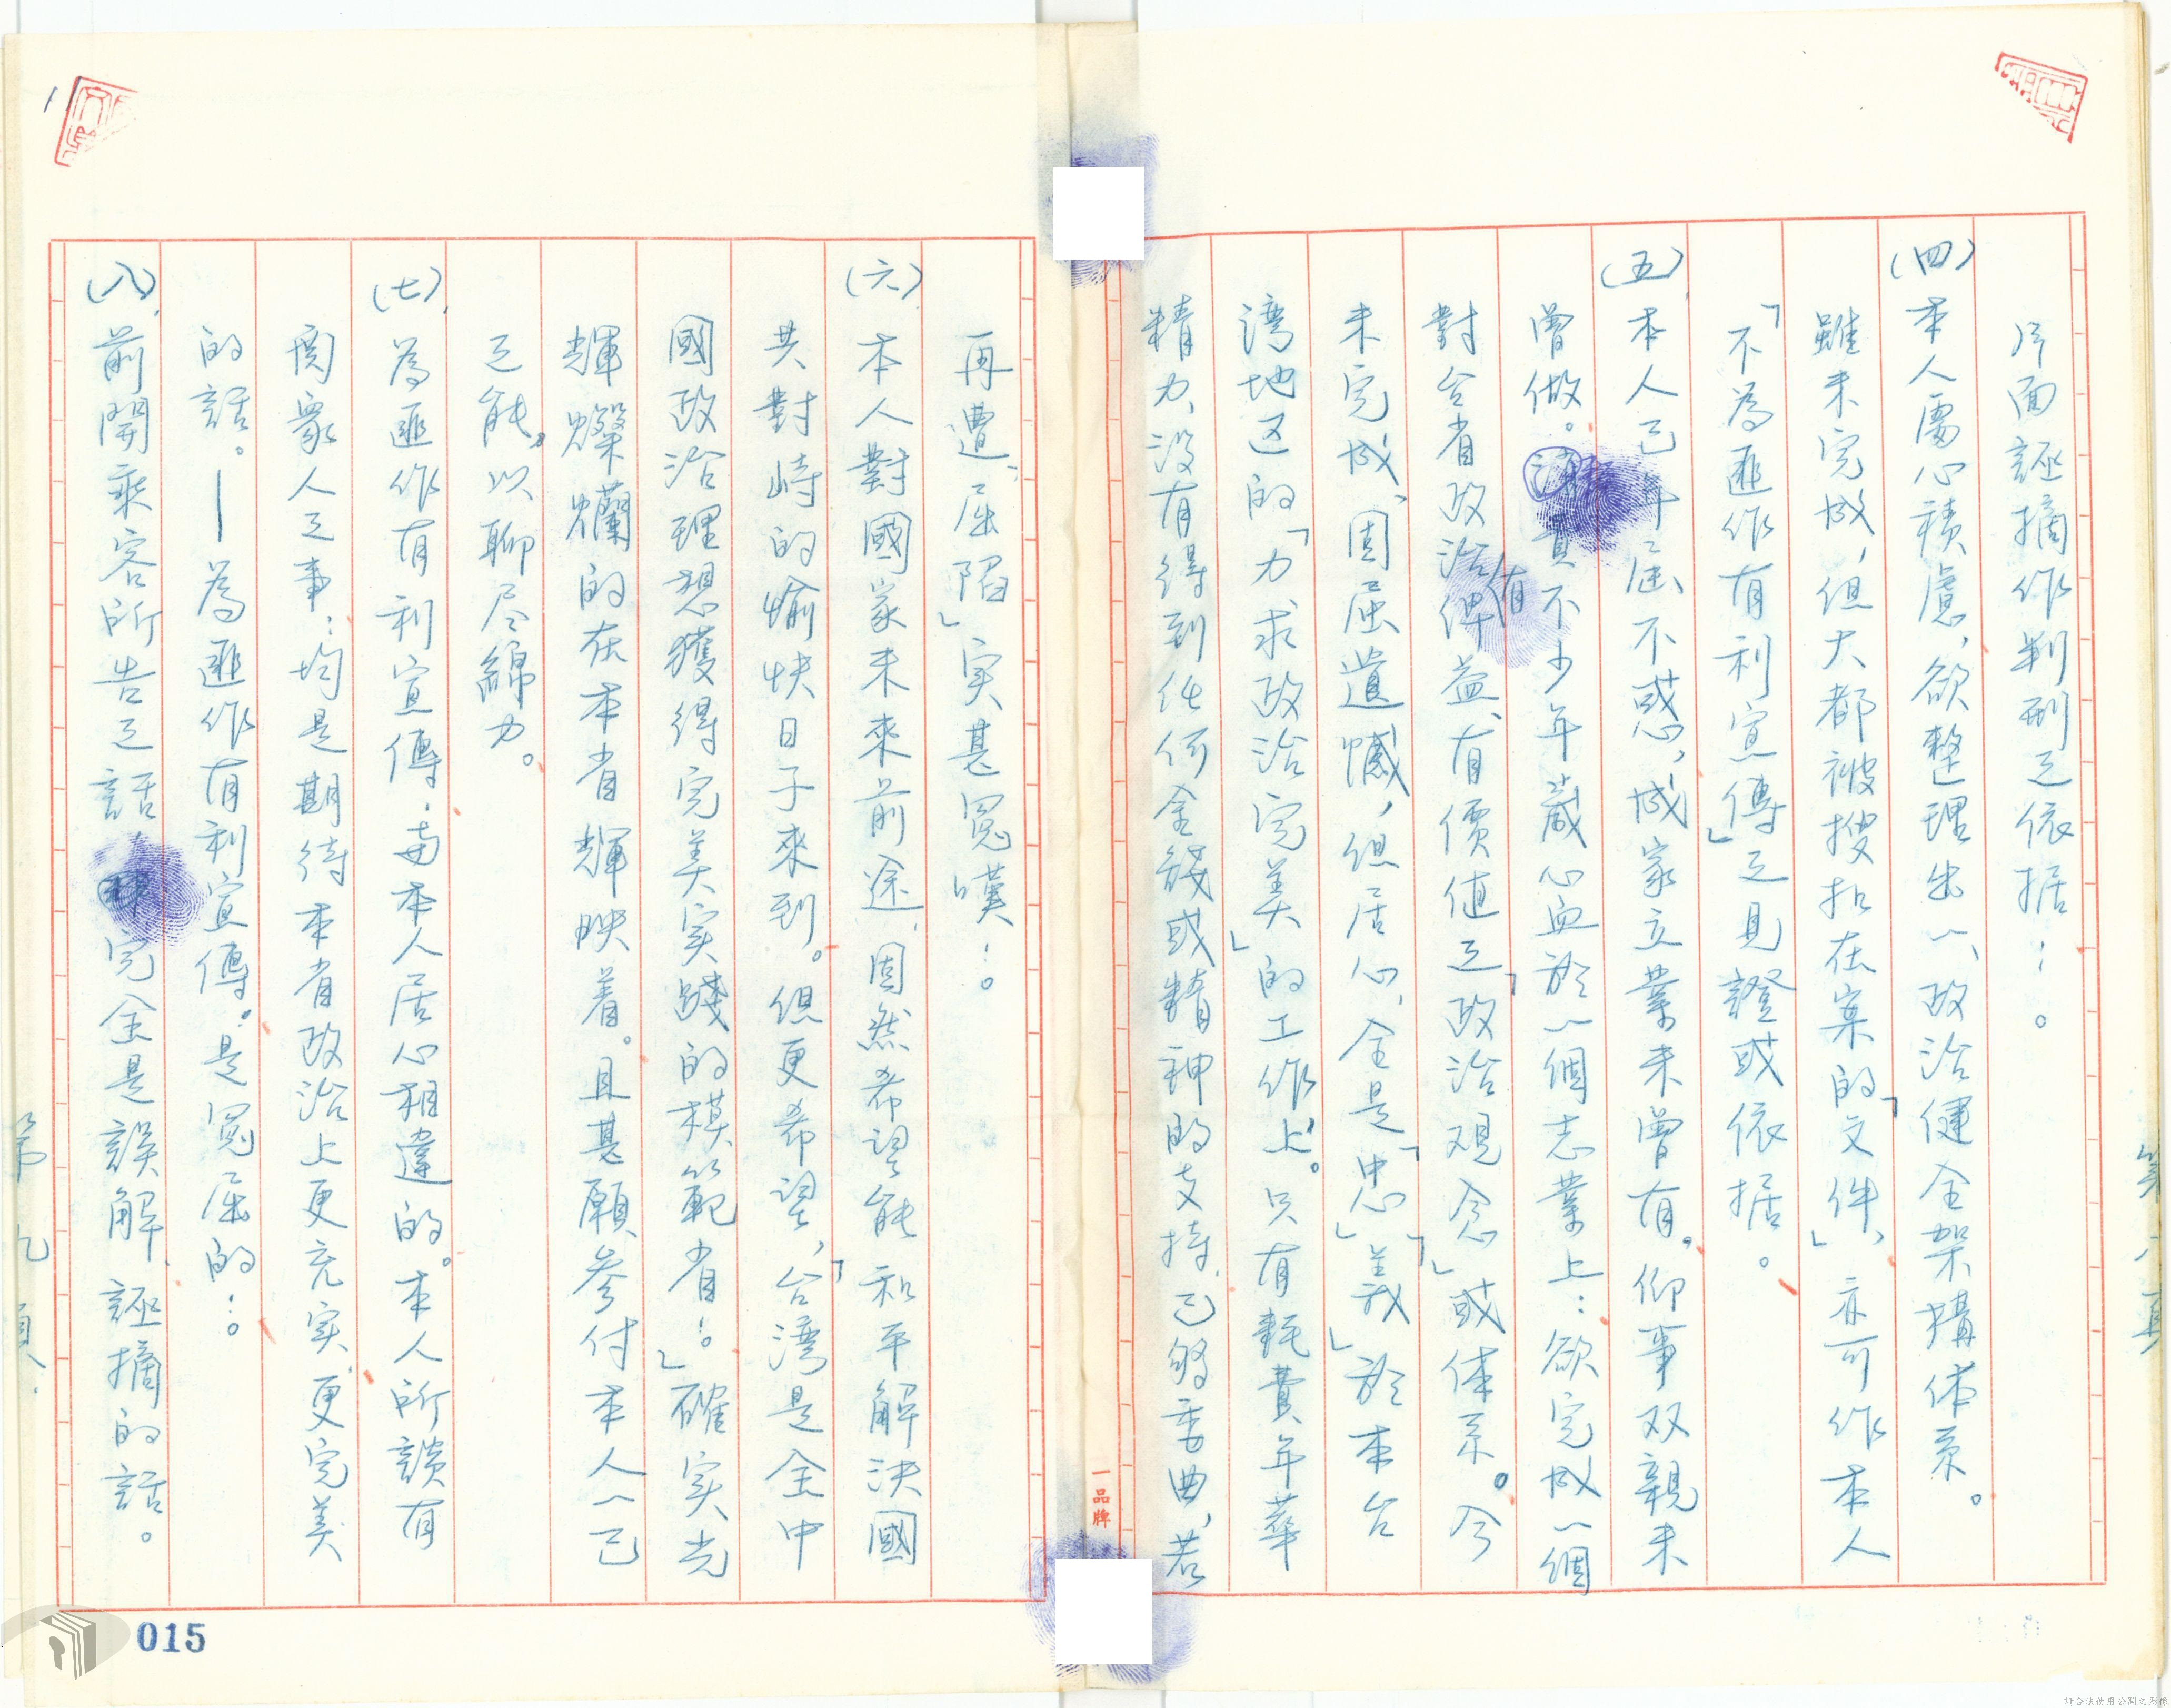 片面誣摘作判刑之依据：。
(四)本人處心積慮，欲整理出一、政治健全架構体系。
雖未完成，但大都被搜扣在案的「文件」，亦可作本人
「不為匪作有利宣傳」之見證或依据。
(五)、本人已年屆不惑，成家立業未曾有。仰事双親未
曾做。費有不少年歲心血於一個志業上：欲完成一個
對台省政治俾益、有價值之「政治观念」或体系。今
未完成、固屬遺憾，但居心、全是「忠」「義」於本台
湾地区的「力求政治完美」的工作上。只有耗費年華
精力、没有得到任何金錢或精神的支持、已够委曲、若
再遭、屈陷」实甚冤嘆！。
(六)、本人對國家未來前途、固然希望能和平解決國
共對峙的愉快日子來到。但更希望，「台湾是全中
國政治理想獲得完美实踐的模範省！」確实光
輝燦爛的在本省輝映着。且甚願參付本人一己
之能。以聊尽綿力。
(七)、為匪作有利宣傳，与本人居心相違的。本人所談有
関眾人之事，均是期待本省政治上更充实、更完美
的話。—為匪作有利宣傳。是冤屈的！。
(八)、前開乘客所告之話 完全是誤解、誣摘的話。
第八頁
第九頁
一品牌
015
請合法使用公開之影像